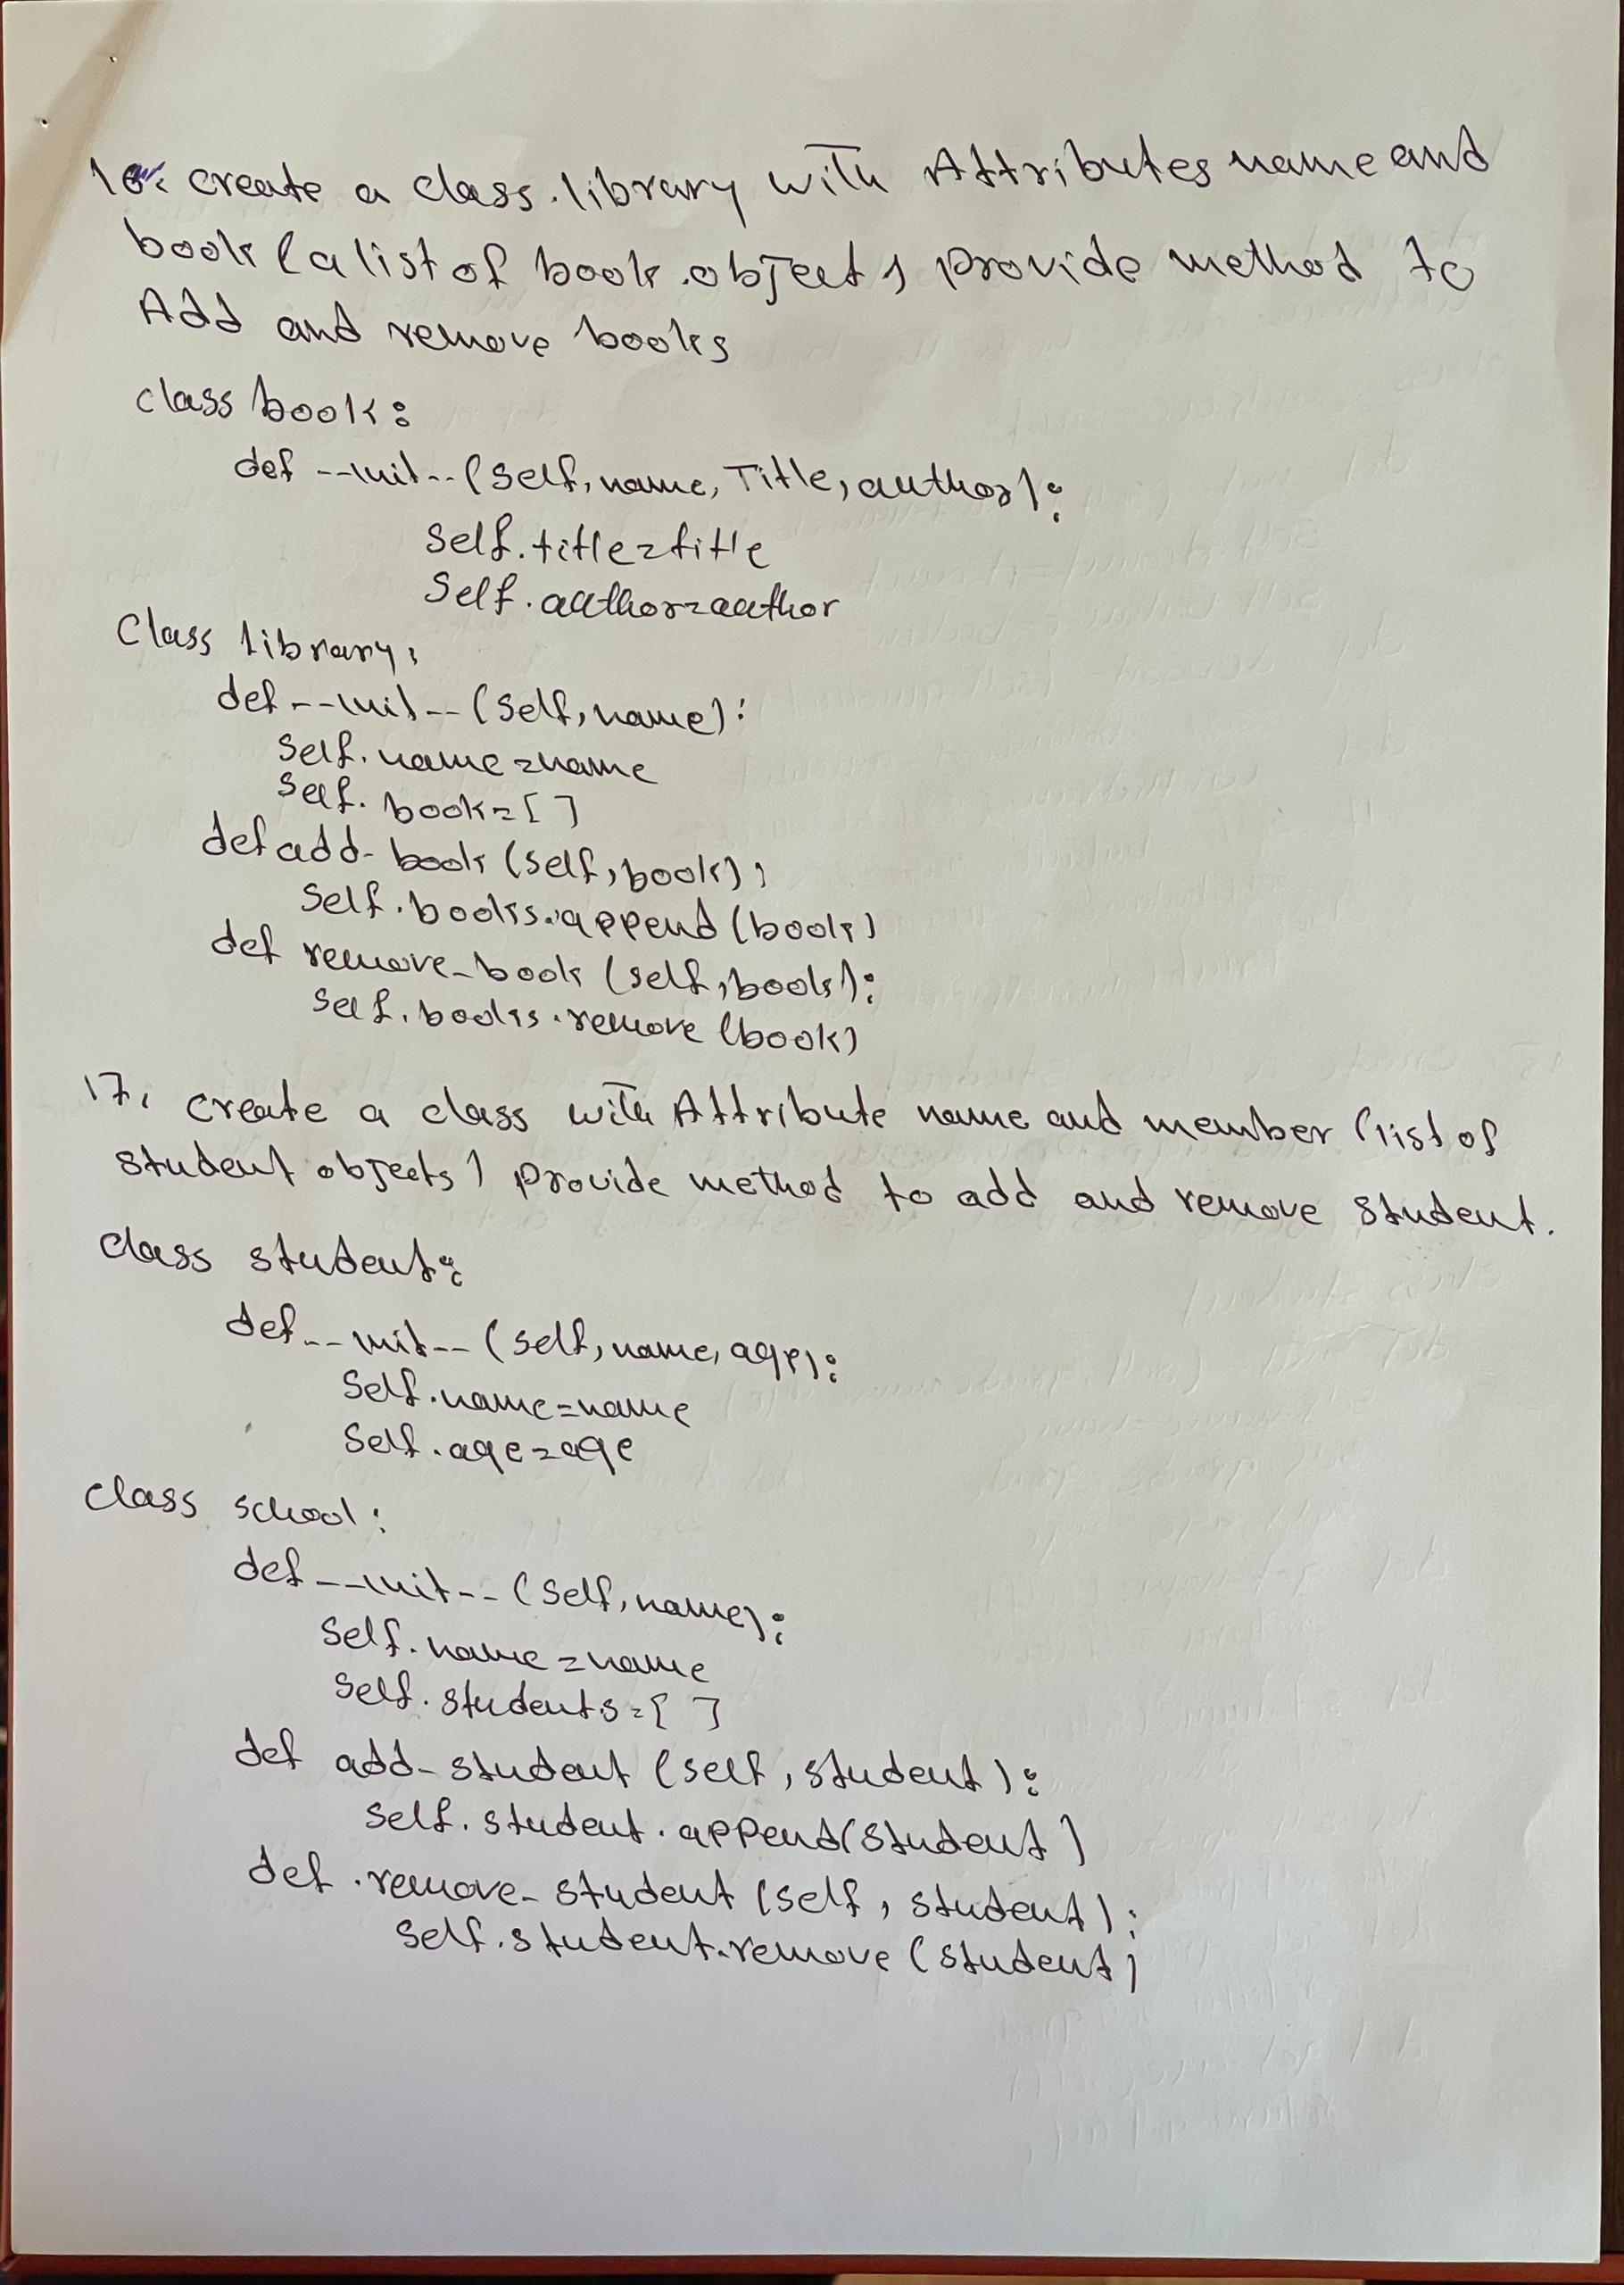 16. create a class.library with Attributes name and
book (a list of book.object) provide method to
Add and remove books
class book:
def --init--(self,name, Title, author):
self.title=title
self.author=author
Class library:
def --init--(self,name):
self.name=name
self.book=[ ]
def add-book (self,book);
self.books.append(book)
def remove-book (self,book):
self.books.remove (book)
17. create a class with Attribute name and member (list of
student objects) provide method to add and remove student.
class student:
def --init-- (self,name,age):
self.name=name
self.age=age
class school:
def --init-- (self,name):
self.name=name
self.students=[ ]
def add-student (self, student):
self.student.append(student)
def .remove-student (self, student):
self.student.remove (student)